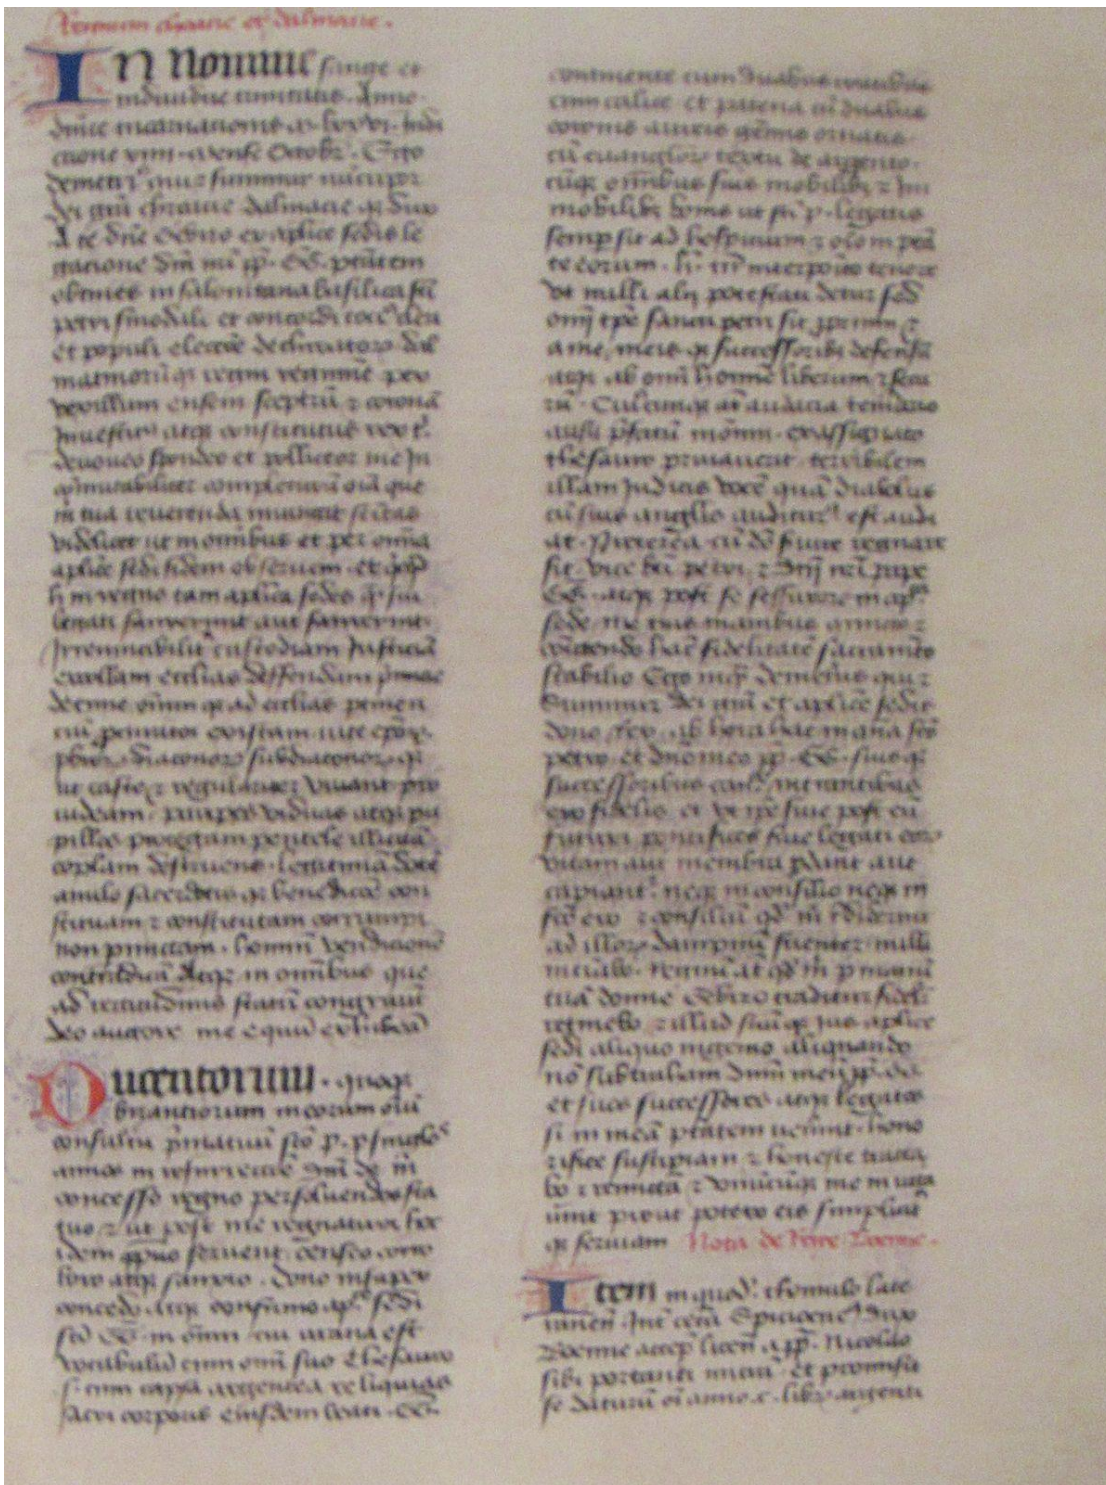 Regnum chroacie et dalmacie.
IN Nomine sancte et
individue trinitatis. Anno
dnice incarnacionis m. lxxvi. Indi
ctione xiiii. mense Octobr. Ego
demetri qui 2 summir nucupor
dei gra chroacie dalmacie q dux
A te dne Gebizo ex aplice sedis le
gacione dni nri pp. GG. ptatem
obtines in salonitana basilica sci
petri sinodali et concordi tocius cleri
et populi electione de chroatorum dal
matinorum q regni regimine per
vexillum ensem sceptru 2 corona
Investitus atq constitutus rex t.
devoveo spondeo et polliceor me In
comutabiliter completuru oia que
m tua reverenda iniungit scitas
videlicet ut in omnibus et per omnia
aplice sedi fidem observem. et quicq
h in regno tam aplica sedes q sui
legati sanxerunt aut sanxerint
Irremincabilit custodiam Iusticia
excollam ecclias deffendam primicie
decime oium q ad ecclias pertinen
ciu procurator existam vite epor
pbror diaconor subdiaconor q
ut caste 2 regulariter vivant pro
videam. pauperes viduas atq pu
pillos protegam parentele illicita
coplam destruens. legittima dote
anulo sacerdotis q benedictione con
stituam 2 constitutam corrumpi
non permittam. hominu vendicione
contradica Atq in omnibus que
ad rectitudinis statu congruunt
deo auctore me equu exhibea
Ducentorum. quoq
bizantiorum meorum oiu
consultu primatuu sco p. p singlos
annos in resurrectione dni de m
concesso regno persolvendos sta
tuo 2 ut post me regnaturi hoc
idem perpetuo servent censeo corro
boro atq sanxio. dono insuper
concedo atq confirmo aplice sedi
sci GG. m oniu cui urana est
vocabulu cum omi suo thesauro
s. cum capsa argentea reliquias
sacri corporis eiusdem beati. GG.
continente cum duabus crucibus
cum calice et patena cu duabus
coronis aureis gemis ornatis
cu evangelior textu de argento.
cuq omnibus suis mobilibz 2 Im
mobilibz bonis ut sci p. legatis
semp sit ad hospicium 2 oio in pta
te eorum. h tn interposito tenore
vt nulli alij potestati detur sed
omi tpe sancti petri sit proprium 2
a me, meis q successoribz defensu
atq ab omi homine liberum 2 secu
ru. Cuicunq at audacia temario
ausu pfatu monm. exassignato
thesauro privaverit. terribilem
illam Iudicis voce qua diabolus
cu suis anglis auditur est audi
at. Preterea cu do sivire regnare
sit. vice bti petri. 2 dni nri pape
GG. atq post se sessuros in ap.
sede. me tuis manibus omitto 2
comittendo hac fidelitate sacramento
stabilio Ego inq demetrius qui 2
Summir dei gra et aplice sedis
dono rex. ab hora hac in antea sco
petro. et dno meo pp. GG. suis q
successoribus can. intrantibus
ero fidelis. et ve ipse sive post eu
futuri pontifices sive legati eor
vitam aut membra perdant aut
capiant. neq in consilio neq in
fco ero 2 consiliu qd m crediderint
ad illor dampnu scienter nulli
intimabo. Regnu at qd m p manu
tua domine Gebizo traditur fidel
retinebo. 2 illud suu q Ius aplice
sedi aliquo ingenio aliquando
no subtraham Dnm meu pp. GG.
et suos successores atq legatos
si in mea ptatem venerint. hono
rifice suscipiam 2 honeste tracta
bo 2 remittam 2 undecunq me invita
verint prout potero eis simplicit
q serviam Nota de
Item in quod. thomulo late
ranen. Int cetera Spicicene. dux
Boemie accep licen a pp. Nicolao
sibi portandi mitra et promisit
se daturu oi anno. c. libr argenti